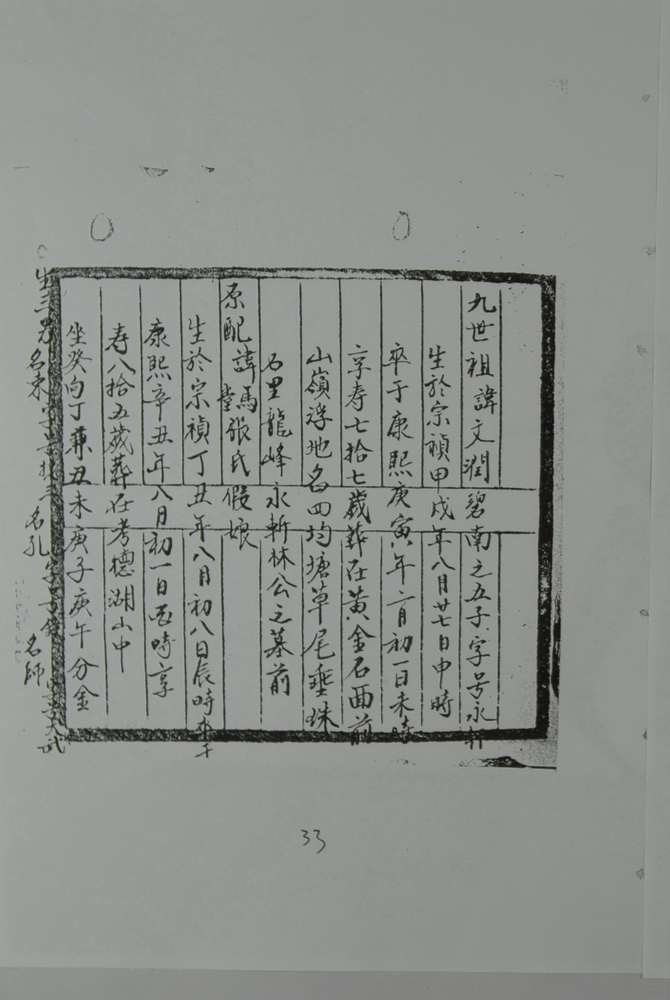 九世祖諱文潤碧南之五子字号永軒
生於宗禎甲戌年八月廿七日申時
卒于康熙庚寅年六月初一日未時
享寿七拾七歲葬在黃金石面前
山嶺浮地名四均塘草尾垂珠
石里龍峰永斬林公之墓前
原配諱馬張氏假娘
生於宗禎丁丑年八月初八日辰時卒于
康熙辛丑年八月初一日酉時享
寿八拾五歲葬在考德湖山中
坐癸向丁兼丑未庚子庚午分金
生三男 名東 名孔 名師
33